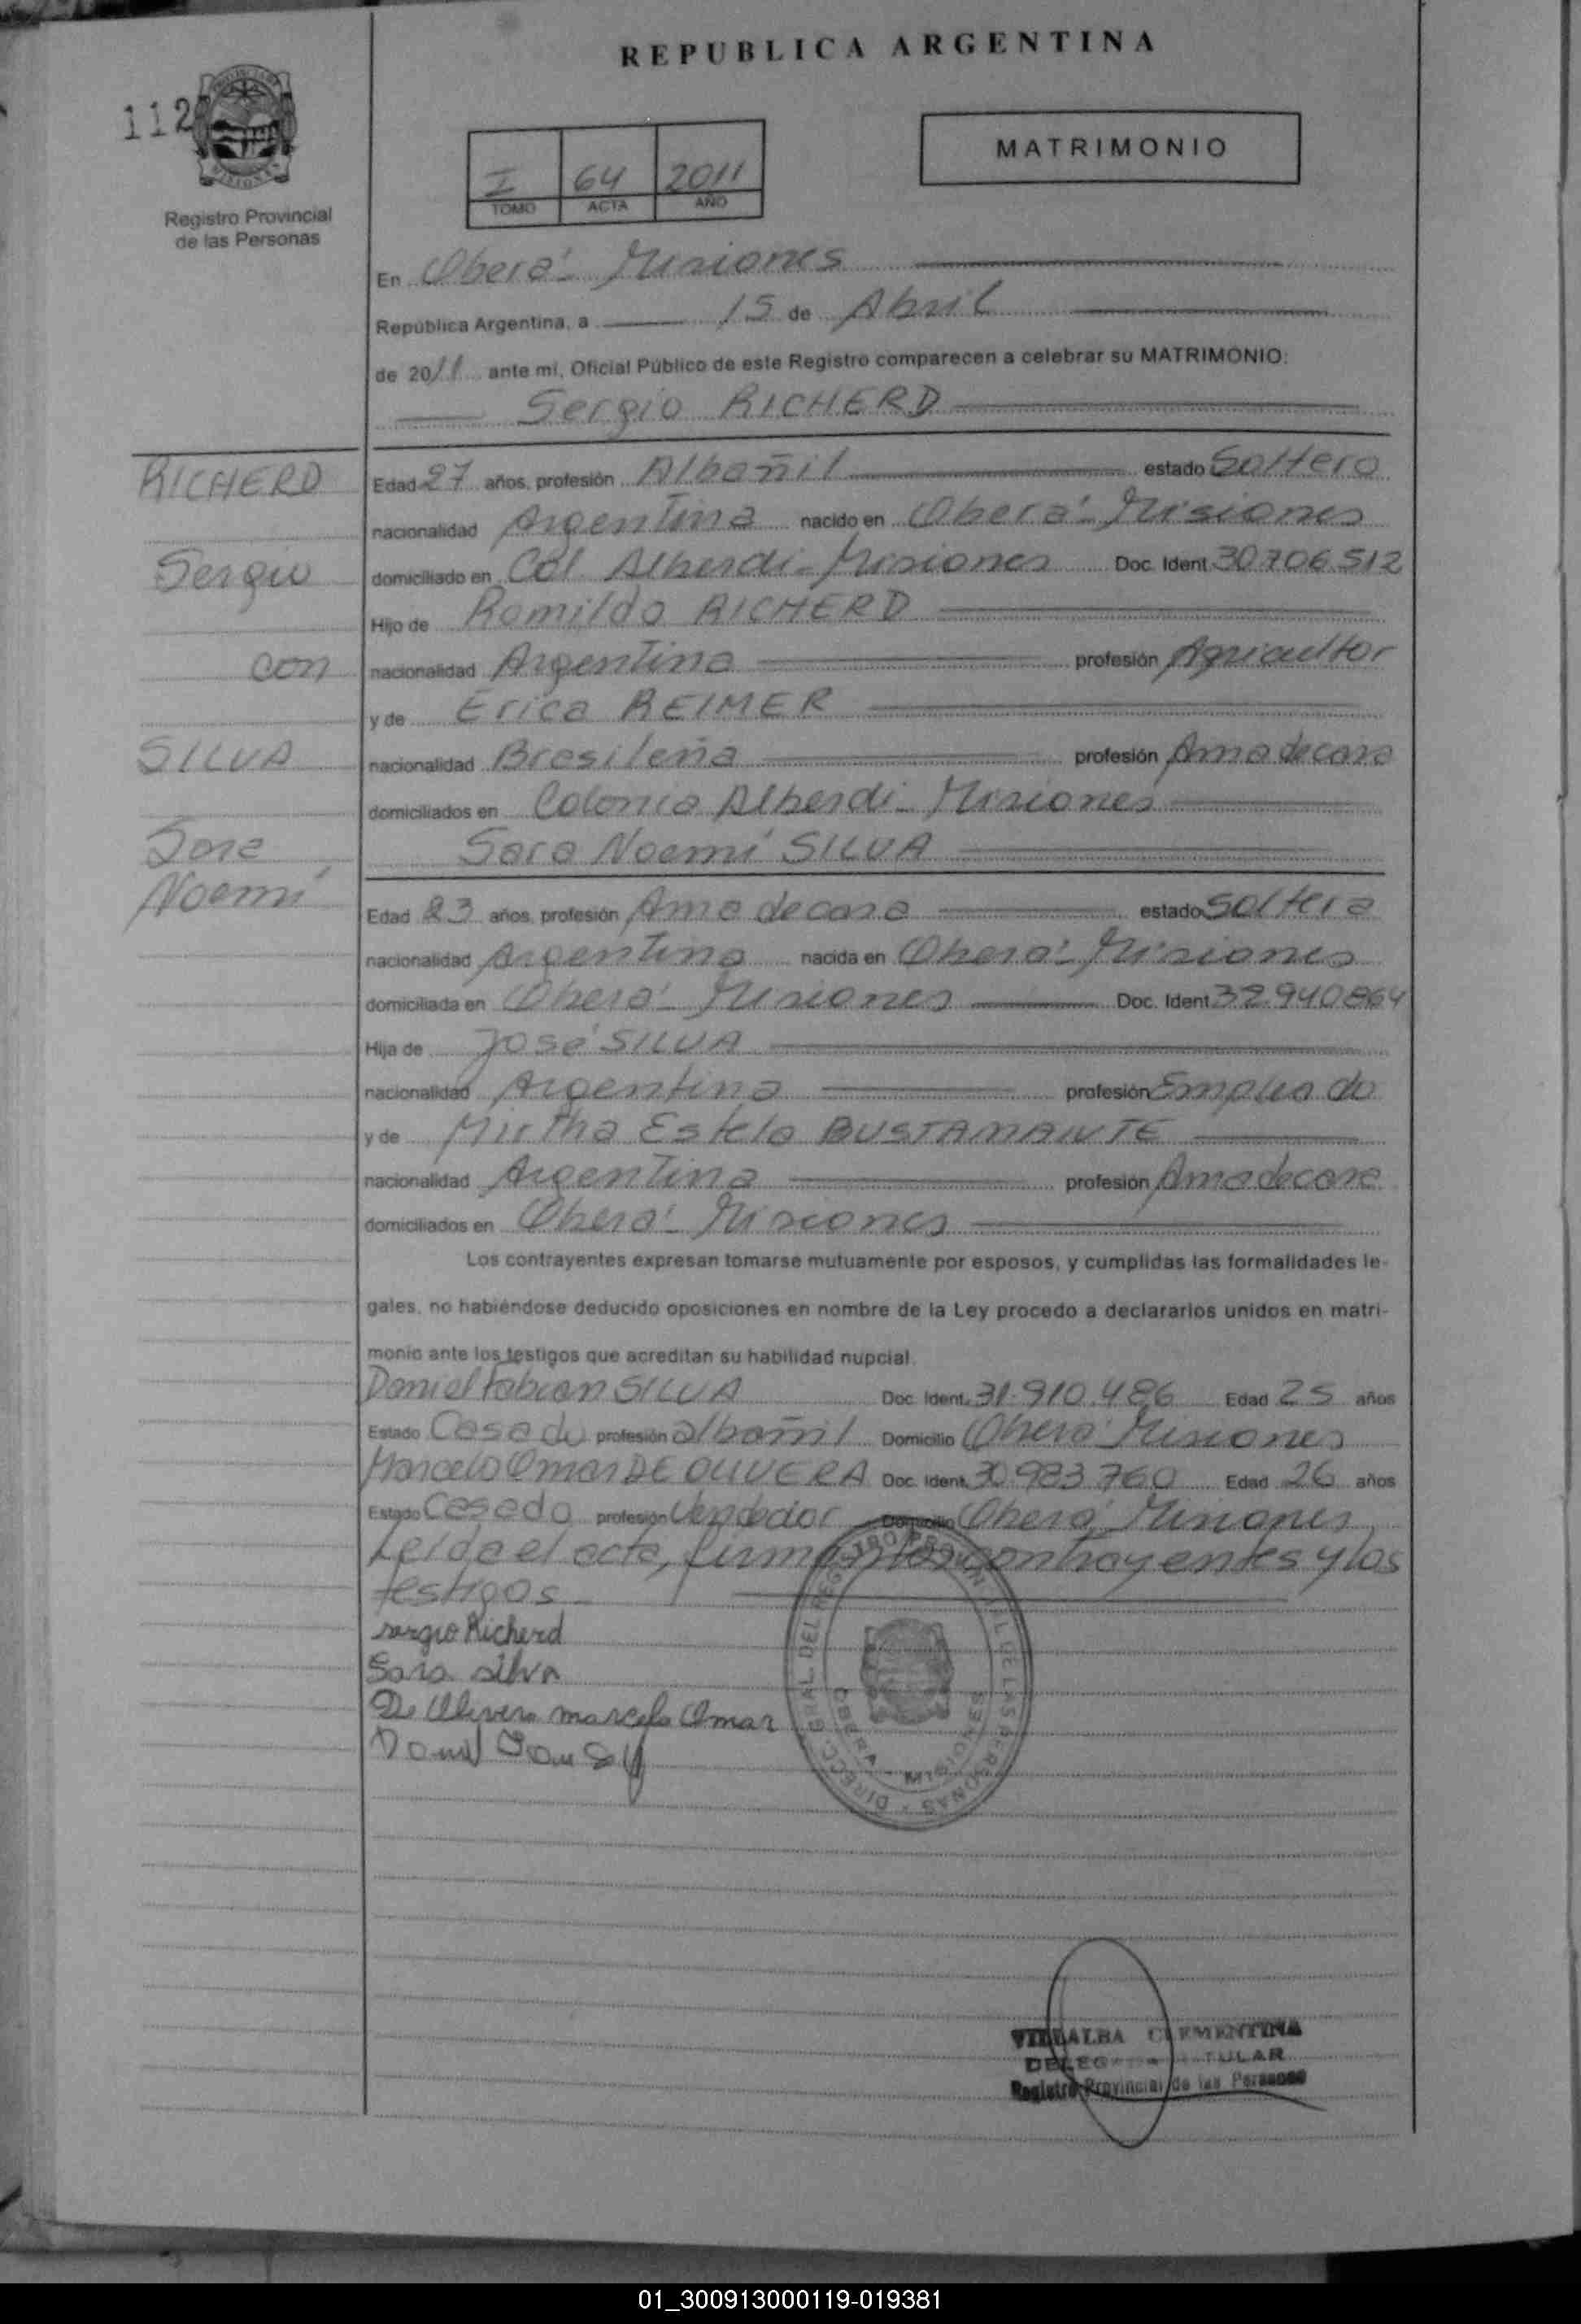 REPUBLICA ARGENTINA
112
MATRIMONIO
I 64 2011
TOMO ACTA AÑO
Registro Provincial
de las Personas
En Oberá - Misiones
República Argentina, a 15 de Abril
de 2011 ante mi, Oficial Público de este Registro comparecen a celebrar su MATRIMONIO:
Sergio RICHERD
RICHERD
Sergio
con
SILVA
Sara
Noemí
Edad 27 años, profesión Albañil estado Soltero
nacionalidad Argentina nacido en Oberá - Misiones
domiciliado en Col. Alberdi - Misiones Doc. Ident. 30.706.512
Hijo de Romildo RICHERD
nacionalidad Argentina profesión Agricultor
y de Erica REIMER
nacionalidad Brasileña profesión Ama de casa
domiciliados en Colonia Alberdi - Misiones
Sara Noemí SILVA
Edad 23 años, profesión Ama de casa estado Soltera
nacionalidad Argentina nacida en Oberá - Misiones
domiciliada en Oberá - Misiones Doc. Ident. 32.940.864
Hija de José SILVA
nacionalidad Argentina profesión Empleado
y de Mirtha Estela BUSTAMANTE
nacionalidad Argentina profesión Ama de casa
domiciliados en Oberá - Misiones
Los contrayentes expresan tomarse mutuamente por esposos, y cumplidas las formalidades le-
gales, no habiéndose deducido oposiciones en nombre de la Ley procedo a declararlos unidos en matri-
monio ante los testigos que acreditan su habilidad nupcial.
Daniel Fabian SILVA Doc. Ident. 31.910.486 Edad 25 años
Estado Casado profesión albañil Domicilio Oberá Misiones
Marcelo Omar DE OLIVERA Doc. Ident. 30.983.760 Edad 26 años
Estado Casado profesión Vendedor Domicilio Oberá Misiones
Leída el acta, firman los contrayentes y los
testigos
sergio Richerd
Sara silva
De Olivera marcelo Omar
DIRECC. GRAL. DEL REGISTRO PROVINCIAL DE LAS PERSONAS
OBERA - MISIONES
VILLALBA CLEMENTINA
DELEGADA TITULAR
Registro Provincial de las Personas
01_300913000119-019381